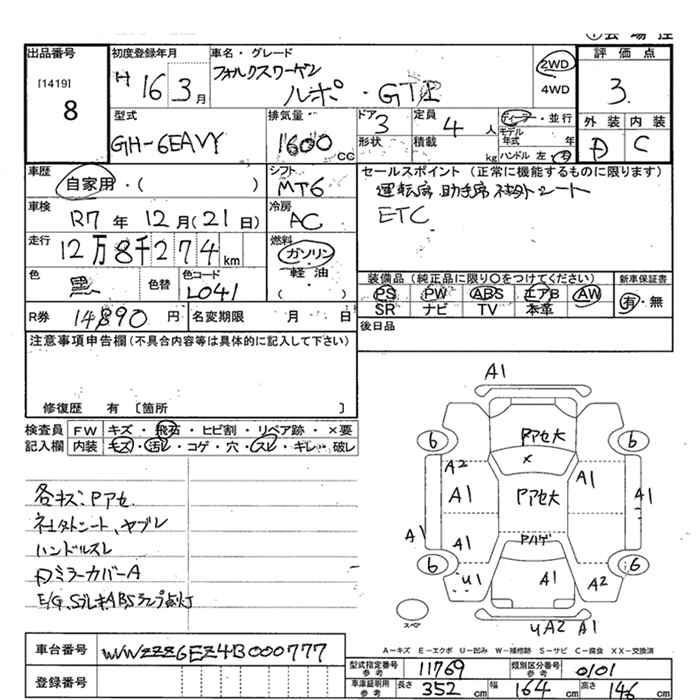 出品番号 初度登録年月 車名・グレード 評価点
[1419] 8 H 16 3月 フォルクスワーゲン
ルポ・GTI 2WD 4WD 3
型式 排気量 ドア 3 定員 4人 ディーラー・並行 外装 内装
GH-6EAVY 1600 CC 形状 積載 kg モデル年式 年 ハンドル 左 右 C
車歴 自家用・( ) シフト MT6 セールスポイント (正常に機能するものに限ります)
車検 R7年12月(21日) 冷房 AC 運転席 助手席 社外シート
ETC
走行 12万8千274km 燃料 ガソリン
軽油
( )
色 黒 色替 色コード L041 装備品(純正品に限り○をつけてください) 新車保証書
PS PW ABS エアB AW 有・無
SR ナビ TV 本革
R券 14890円 名変期限 月 日 後日品
注意事項申告欄(不具合内容等は具体的に記入して下さい)
修復歴 有 〔箇所 〕
検査員 FW キズ・飛石・ヒビ割・リペア跡・×要
記入欄 内装 キズ・汚レ・コゲ・穴・スレ・キレ・破レ
各キズ、Pアセ
社外シート、ヤブレ
ハンドルスレ
ミラーカバーA
ABSランプ点灯
A1
6 Pアセ大 6
×
A2 A1
A1 Pアセ大 A1
A1 A1 Pハゲ
6 U1 A1 A2 6
スペア
UA2 A1
A-キズ E-エクボ U-凹み W-補修跡 S-サビ C-腐食 XX-交換済
車台番号 WVWZZZ6EZ4B000777
型式指定番号 参考 11769 類別区分番号 参考 0101
登録番号 車庫証明用 参考 長さ 352 cm 幅 164 cm 高さ 146 cm